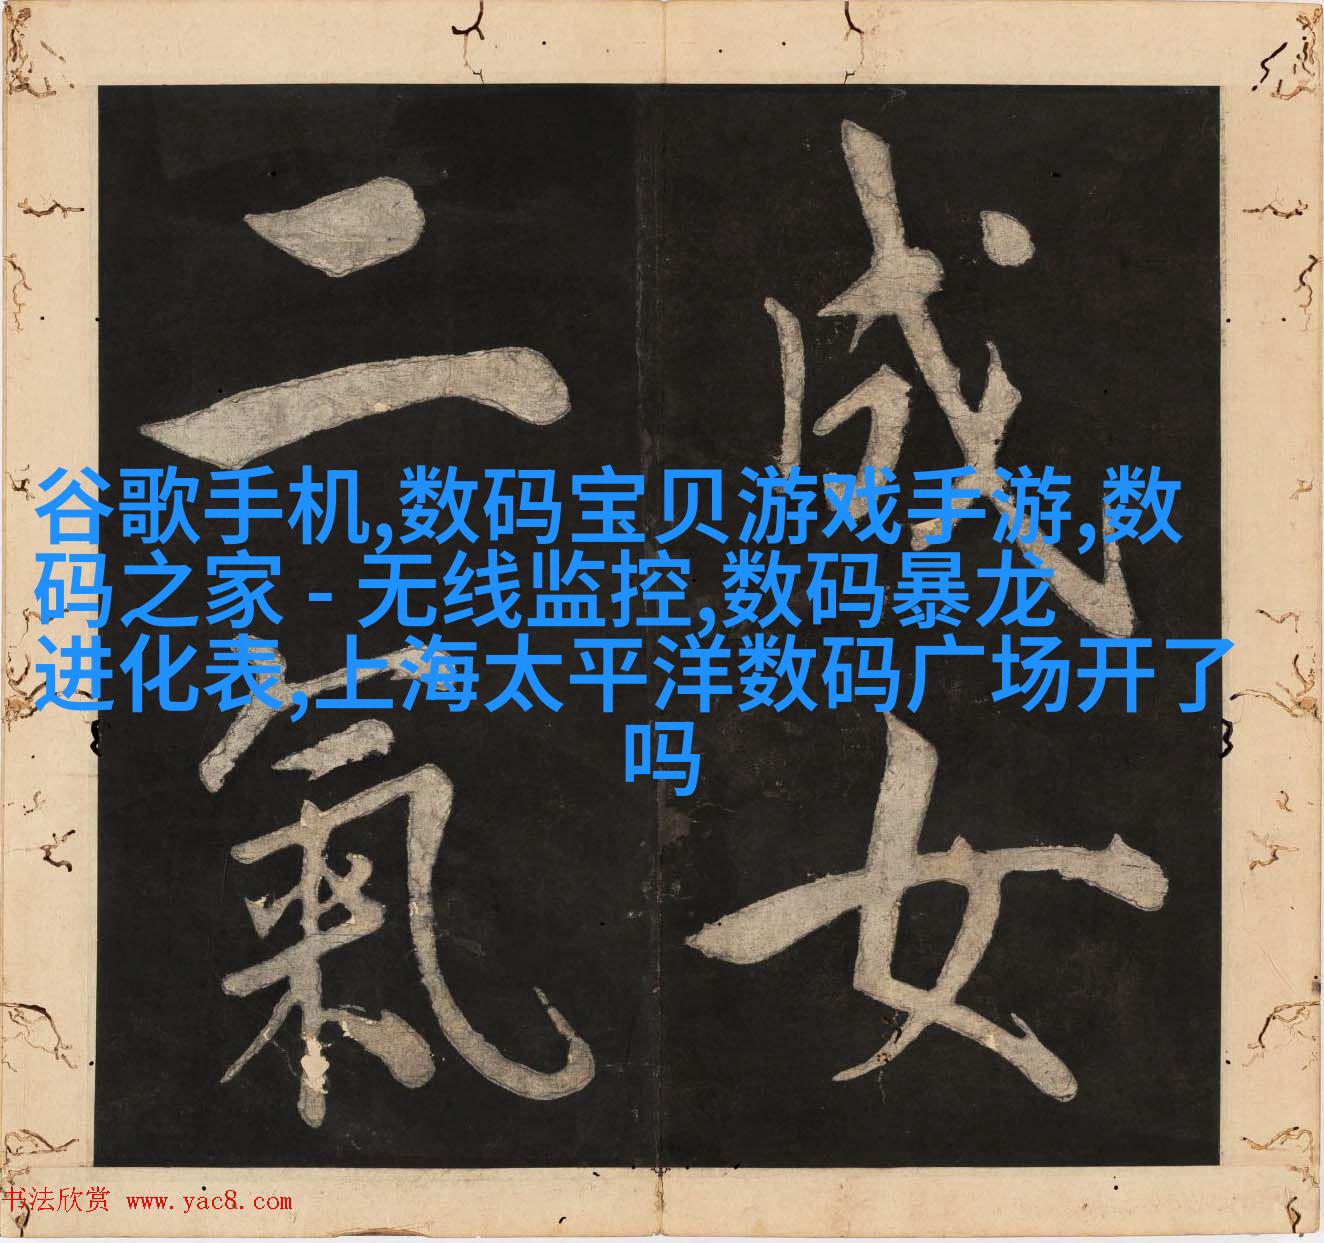 成女
二氣
谷歌手机,数码宝贝游戏手游,数
码之家 - 无线监控,数码暴龙
进化表,上海太平洋数码广场开了
吗
书法欣赏 www.yac8.com